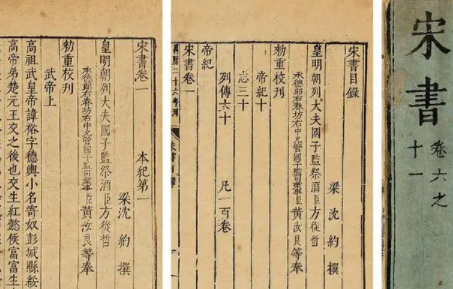 宋書
卷六之
十一
宋書目錄
梁沈約撰
皇明朝列大夫國子監祭酒臣方從哲
承德郎右春坊右中允管國子監司業事臣黃汝良等奉
勅重校刊
帝紀十
志三十
列傳六十 凡一百卷
帝紀
宋書卷一
萬曆二十六年刊
宋書卷一 本紀第一
梁沈約撰
皇明朝列大夫國子監祭酒臣方從哲
承德郎右春坊右中允管國子監司業事臣黃汝良等奉
勅重校刊
武帝上
高祖武皇帝諱裕字德輿小名寄奴彭城縣綏
高帝弟楚元王交之後也交生紅懿侯富富生